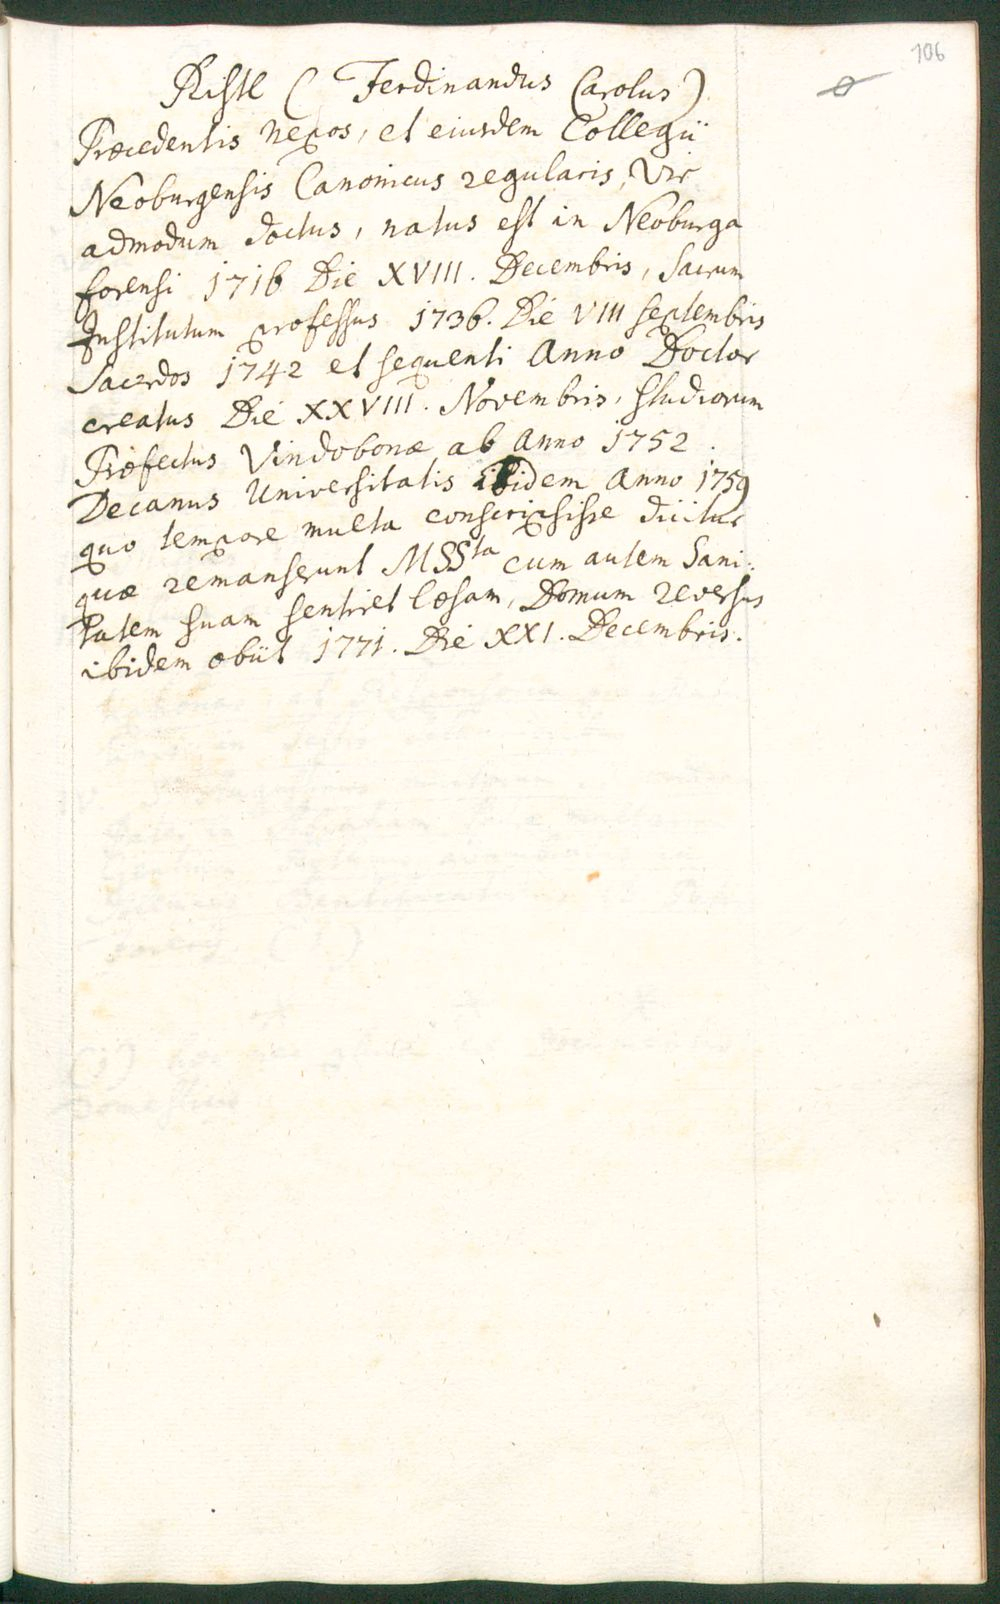 106
Ristl ( Ferdinandus Carolus )
Præcedentis nepos, et eiusdem Collegii
Neoburgensis Canonicus regularis, Vir
admodum doctus, natus est in Neoburga
forensi 1716 Die XVIII. Decembris, Sacrum
Institutum professus 1736. Die VIII septembris
Sacerdos 1742 et sequenti Anno Doctor
creatus Die XXVIII. Novembris, studiorum
Præfectus Vindobonæ ab Anno 1752.
Decanus Universitatis ibidem Anno 1759
quo tempore multa conscripsisse dicitur
quæ remanserunt MSSta cum autem Sani:
tatem suam sentiret læsam, Domum reversus
ibidem obiit 1771. Die XXI. Decembris.